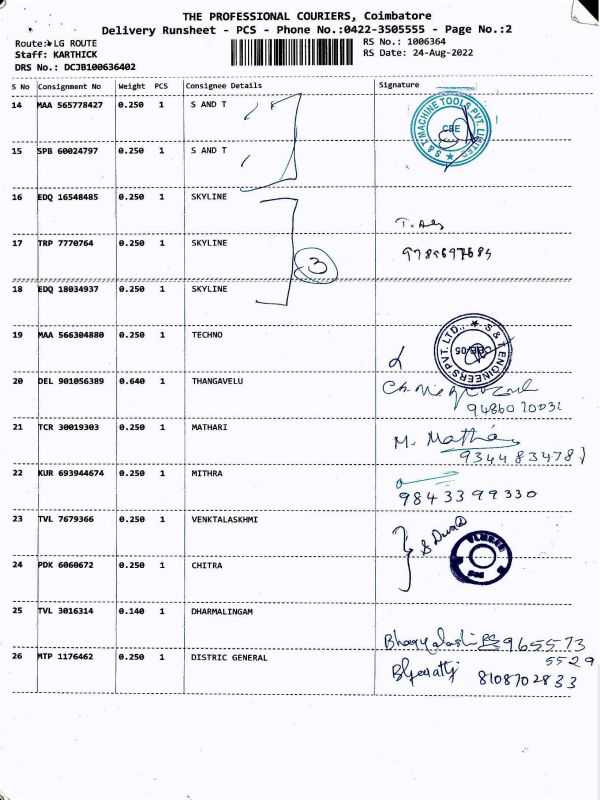 THE PROFESSIONAL COURIERS, Coimbatore
Delivery Runsheet - PCS - Phone No.:0422-3505555 - Page No.:2
Route: LG ROUTE
Staff: KARTHICK
DRS No.: DCJB100636402
RS No.: 1006364
RS Date: 24-Aug-2022
S No Consignment No Weight PCS Consignee Details Signature
14 MAA 565778427 0.250 1 S AND T
S & T MACHINE TOOLS PVT. LIMITED
CBE
15 SPB 60024797 0.250 1 S AND T
16 EDQ 16548485 0.250 1 SKYLINE
17 TRP 7770764 0.250 1 SKYLINE
3
18 EDQ 18034937 0.250 1 SKYLINE
19 MAA 566304880 0.250 1 TECHNO
S & T ENGINEERS PVT. LTD.,
20 DEL 901056389 0.640 1 THANGAVELU
21 TCR 30019303 0.250 1 MATHARI
M. Matha
9344834781
22 KUR 693944674 0.250 1 MITHRA
9843399330
23 TVL 7679366 0.250 1 VENKTALASKHMI
24 PDK 6060672 0.250 1 CHITRA
25 TVL 3016314 0.140 1 DHARMALINGAM
965573
5529
26 MTP 1176462 0.250 1 DISTRIC GENERAL
8108702833